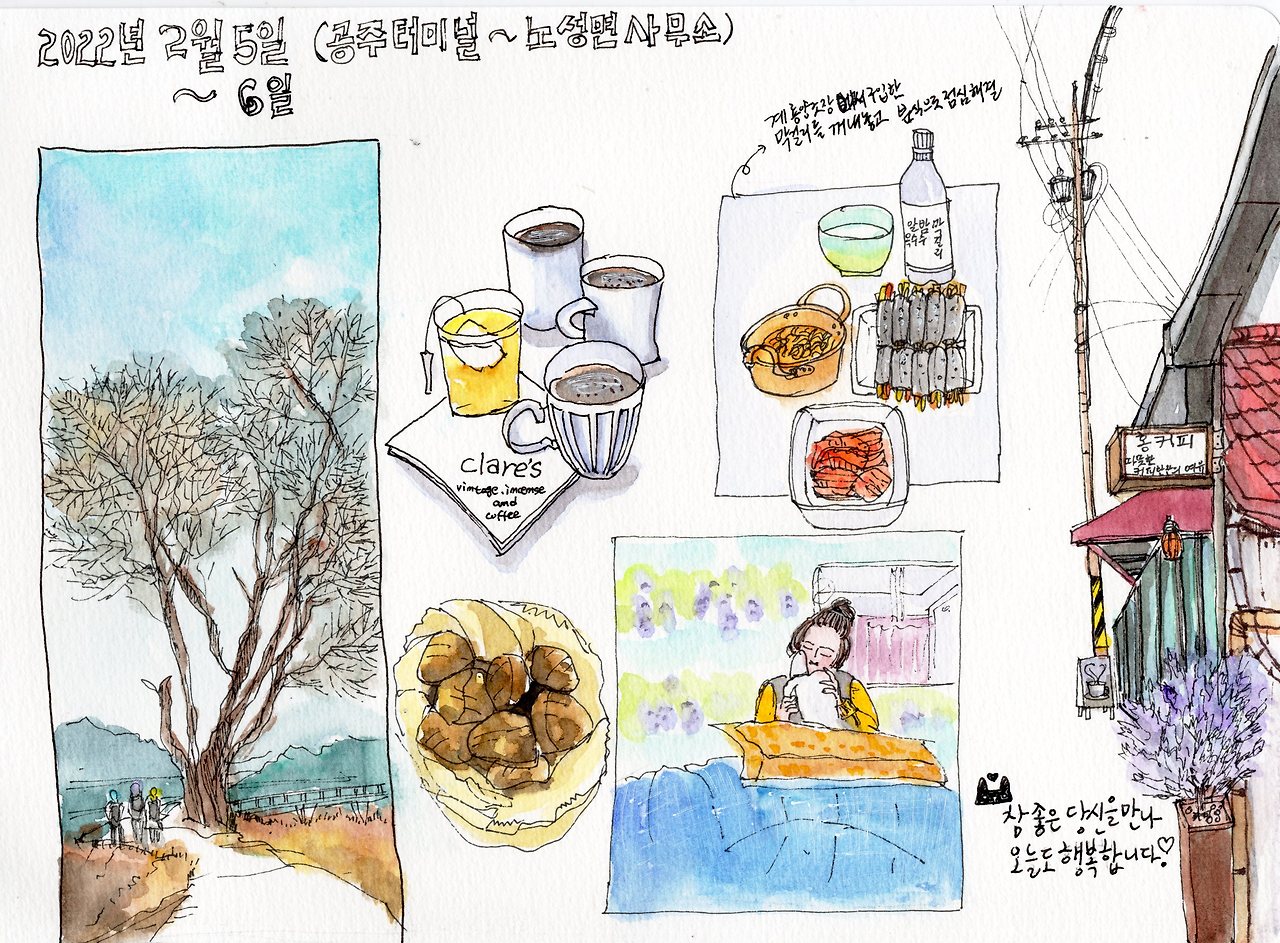 2022년 2월 5일 (공주터미널 ~ 노성면사무소)
~ 6일
계룡양조장에서 구입한
막걸리를 꺼내놓고 분식으로 점심해결
알밤
옥수수
막걸리
clare's
vintage. incense
and
coffee
몽커피
따뜻한
커피한잔의 여유
참 좋은 당신을 만나
오늘도 행복합니다♡